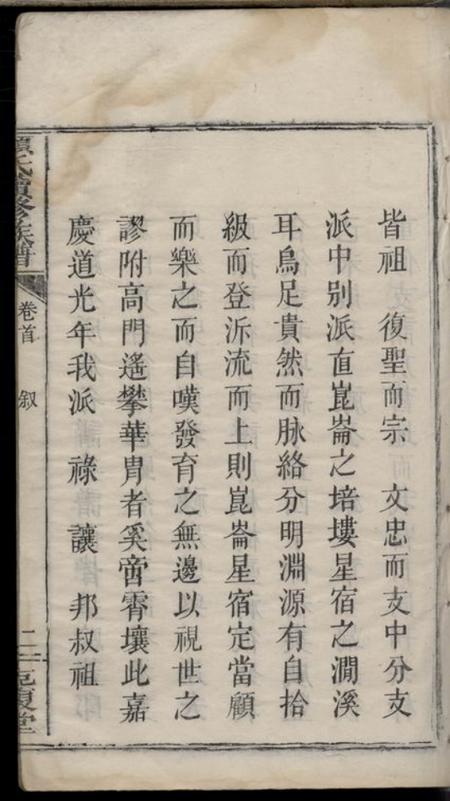 皆祖 復聖而宗 文忠而支中分支
派中別派直崑崙之培塿星宿之澗溪
耳烏足貴然而脉絡分明淵源有自拾
級而登泝流而上則崑崙星宿定當顧
而樂之而自嘆發育之無邊以視世之
謬附高門遙攀華胄者奚啻霄壤此嘉
慶道光年我派 祿 讓 邦叔祖
氏續修族譜
卷首 叙
二
復堂